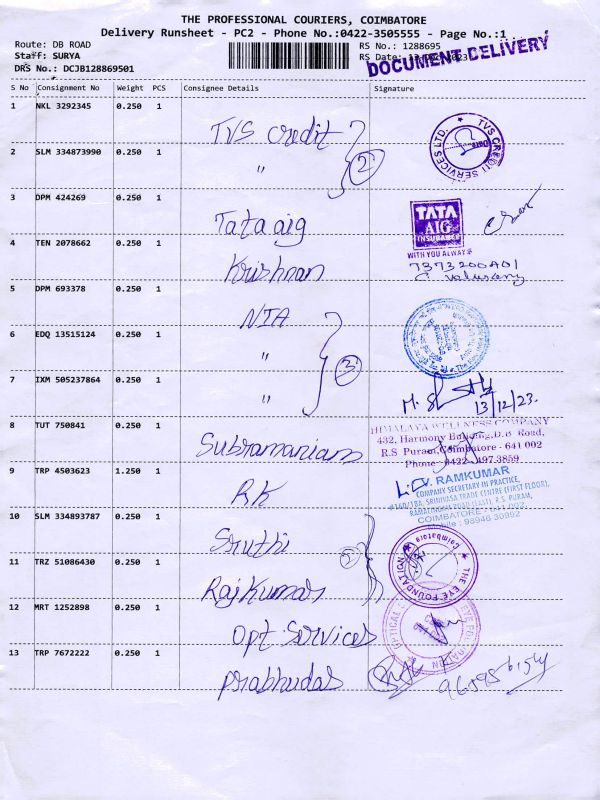 THE PROFESSIONAL COURIERS, COIMBATORE
Delivery Runsheet - PC2 - Phone No.:0422-3505555 - Page No.:1
Route: DB ROAD
Staff: SURYA
DRS No.: DCJB128869501
RS No.: 1288695
RS Date:
DOCUMENT DELIVERY
S No Consignment No Weight PCS Consignee Details Signature
1 NKL 3292345 0.250 1 TVS credit
TVS CREDIT SERVICES LTD.
2 SLM 334873990 0.250 1 " 2
3 DPM 424269 0.250 1 Tata aig
TATA
AIG
INSURANCE
WITH YOU ALWAYS
4 TEN 2078662 0.250 1 Krishnan
5 DPM 693378 0.250 1 NIA
6 EDQ 13515124 0.250 1 "
7 IXM 505237864 0.250 1 " 3
13/12/23.
8 TUT 750841 0.250 1 Subramaniam
HIMALAYA WELLNESS COMPANY
432, Harmony Building, D.B. Road,
R.S Puram, Coimbatore - 641 002
Phone : 0422
9 TRP 4503623 1.250 1 RK
RAMKUMAR
COMPANY SECRETARY IN PRACTICE,
SRINIVASA TRADE CENTRE (FIRST FLOOR),
R.S. PURAM,
COIMBATORE
Mobile : 98946 30992
10 SLM 334893787 0.250 1 Sruthi
11 TRZ 51086430 0.250 1 Rajkumar 2
THE EYE FOUNDATION
Coimbatore
12 MRT 1252898 0.250 1 Opt Services
13 TRP 7672222 0.250 1 Prabhudas